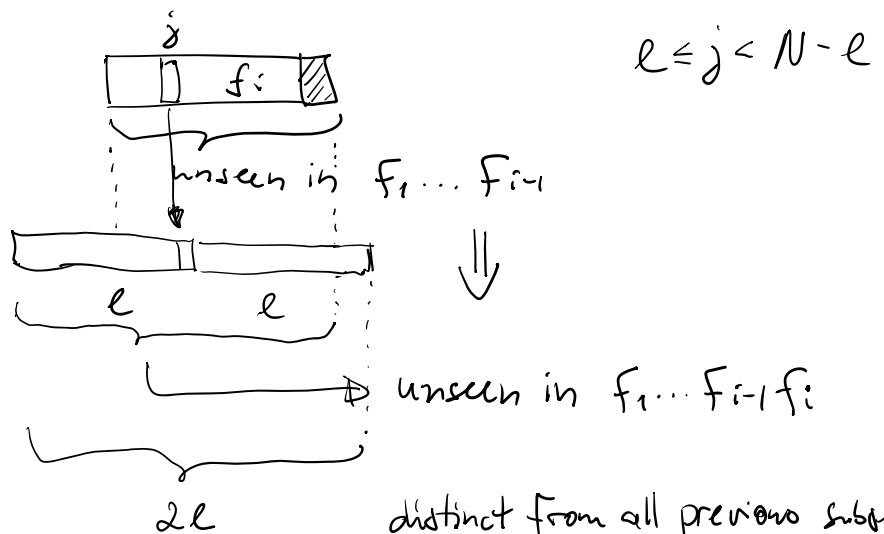 j
l ≤ j < N - l
fi
unseen in f1 ... fi-1
⇓
l l
unseen in f1 ... fi-1 fi
2l
distinct from all previous subs